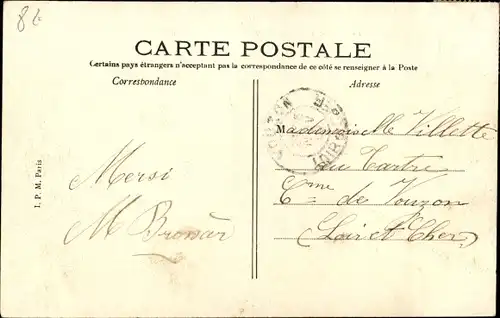 82
CARTE POSTALE
Certains pays étrangers n'acceptant pas la correspondance de ce côté se renseigner à la Poste
Correspondance
Adresse
Mersi
M Bronar
I. P. M. Paris
VOUZON
LOIR
Mademoiselle Villette
au Tartre
Cme de Vouzon
(Loir et Cher)